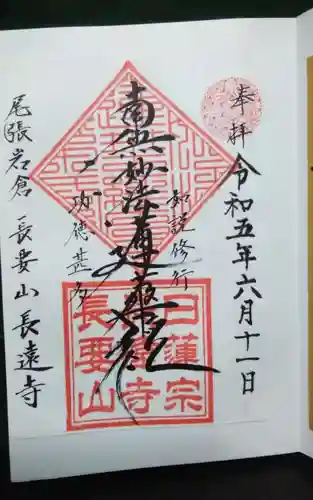 奉拝
令和五年六月十一日
如説修行
南無妙法蓮華経
功徳甚多
尾張岩倉 長要山長遠寺
日蓮宗
長遠寺
長要山